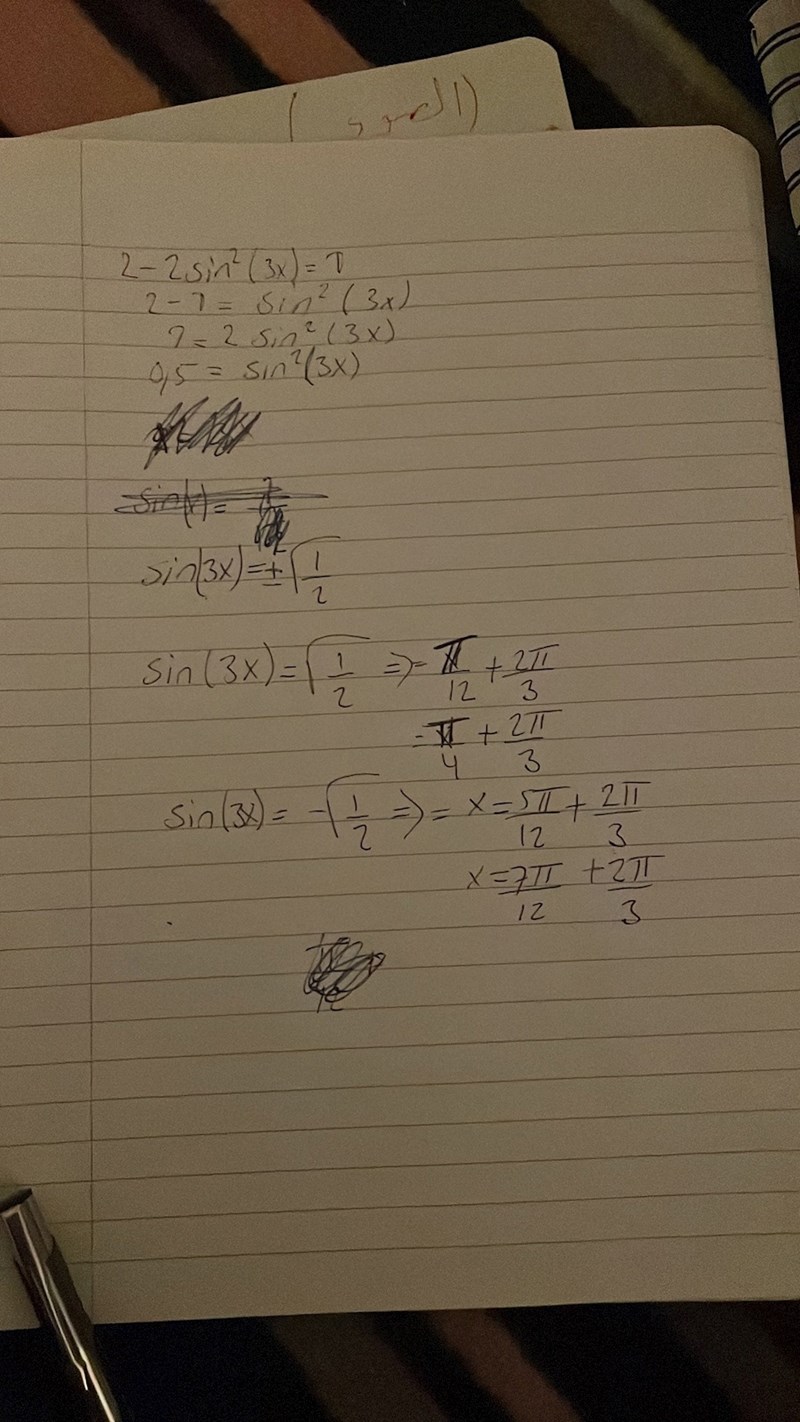 2-2sin²(3x)=1
2-1= sin²(3x)
1=2 sin²(3x)
0,5 = sin²(3x)
sin(3x)=±√1/2
sin(3x)=√1/2 => = π/12 + 2π/3
= π/4 + 2π/3
sin(3x)= -√1/2 => = x=5π/12 + 2π/3
x=7π/12 + 2π/3